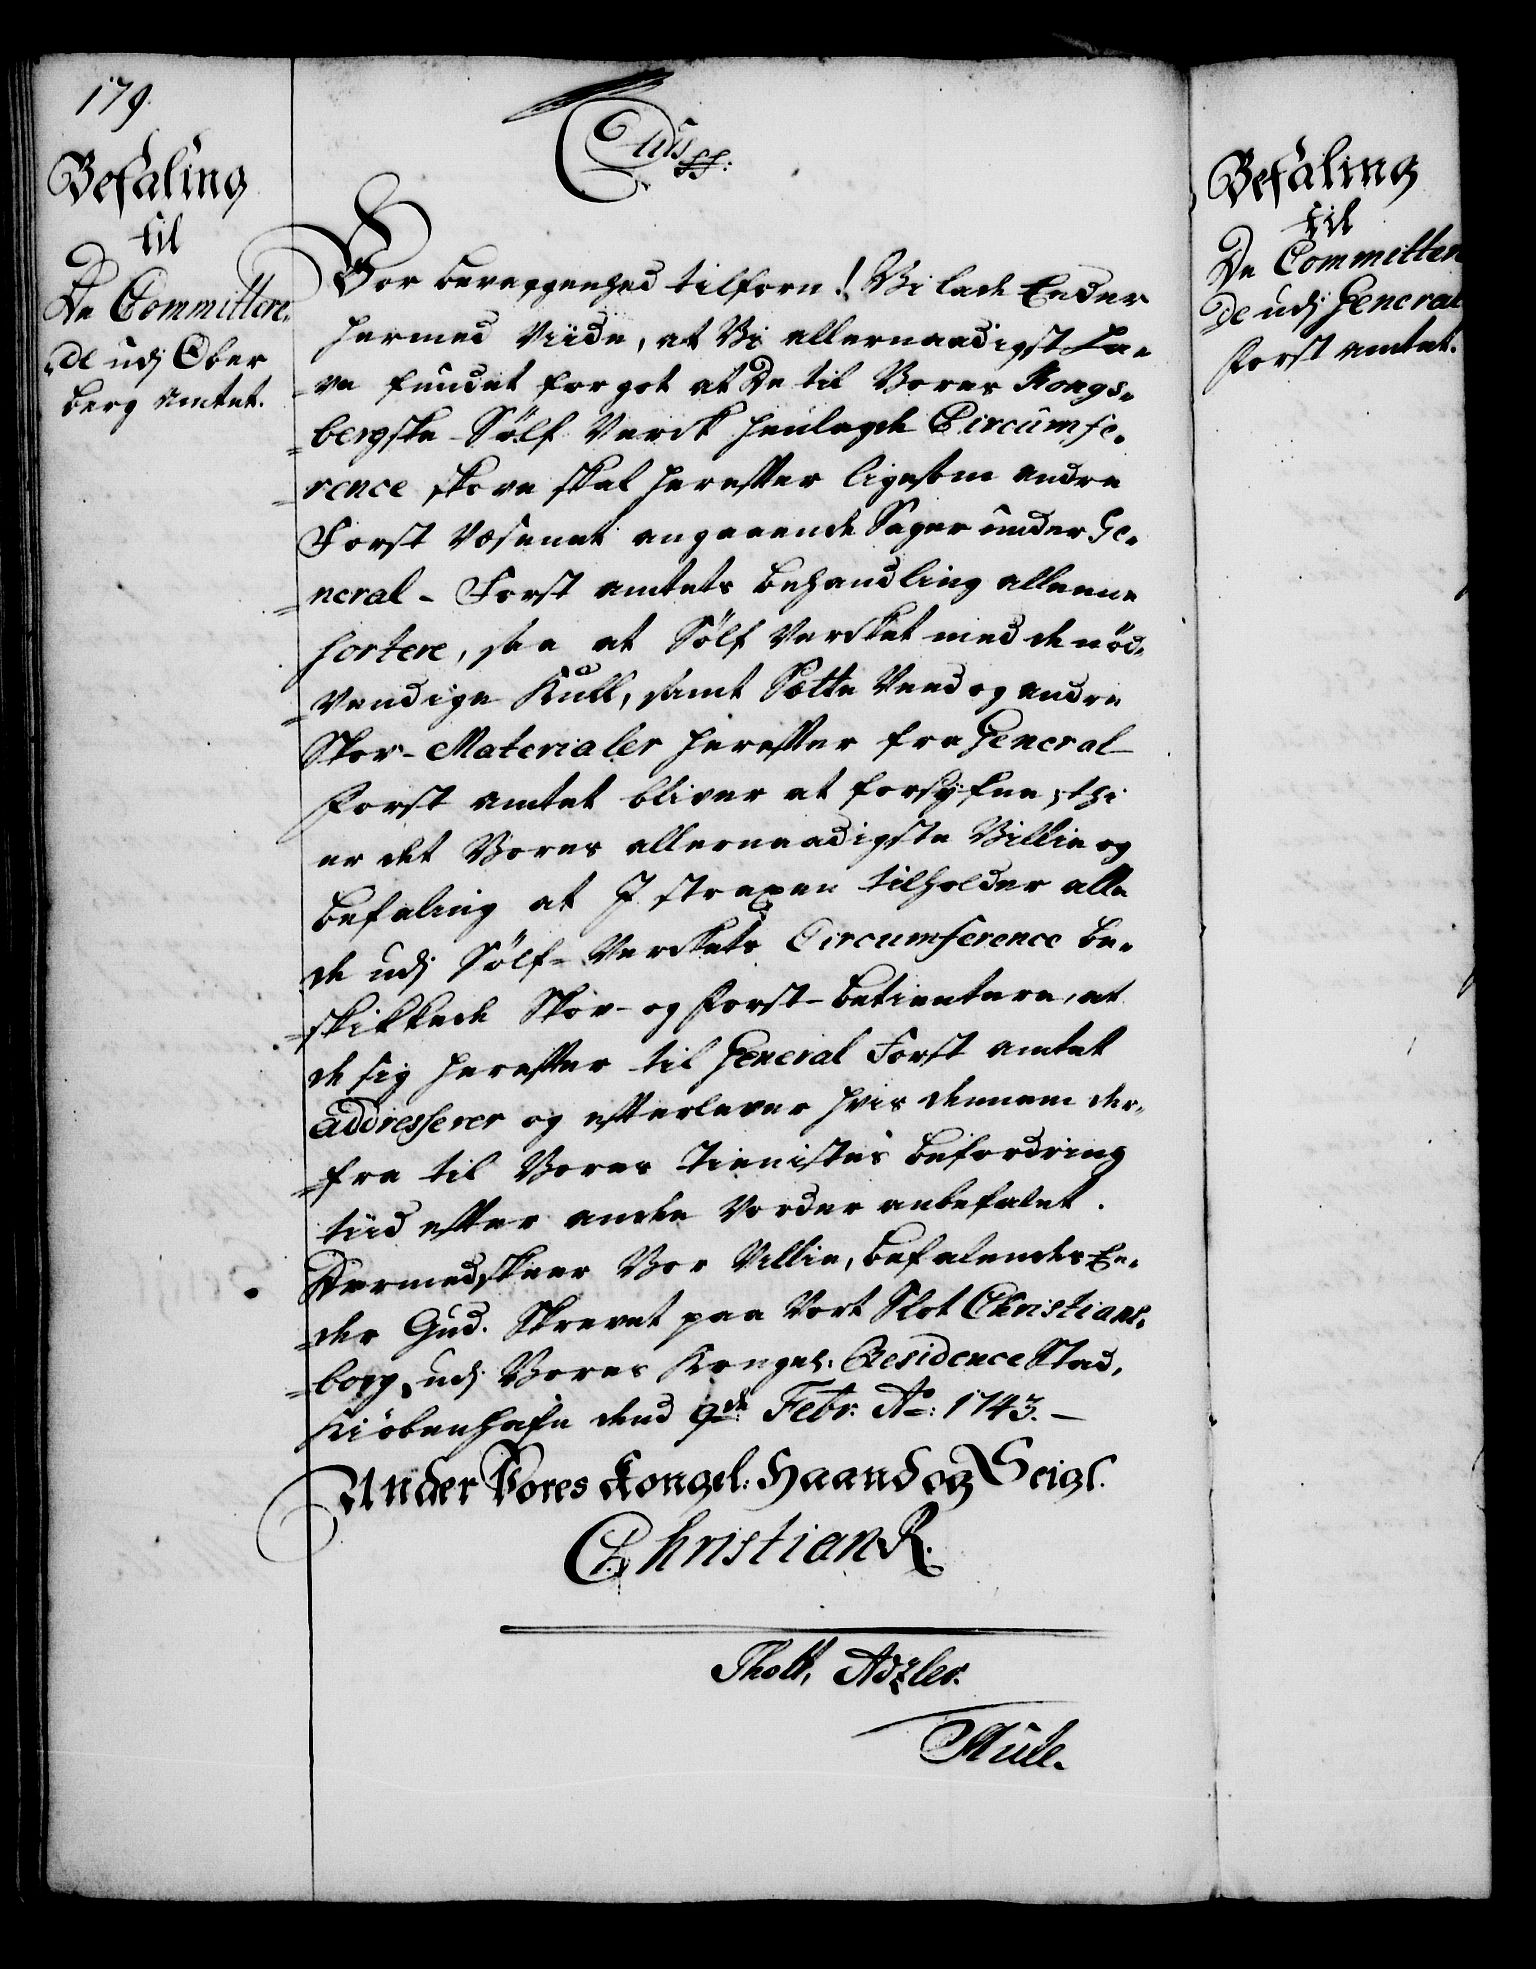 179.
Befaling
til
De Committere,
de udj Ober
berg amtet.
C6tus
Vor bevaagenhed tilforn! Vi lade Eder
hermed Viide, at Vi allernaadigst ha-
ve fundet for got at De til Vores Kongs-
bergske Sölf Verck henlagde Circumfe-
rence skove skal herefter ligesom andre
Forst Væsenet angaaende Sager under Ge-
neral-Forst amtets behandling alleene
sortere, saa at Sölf Vercket med de nöd-
vendige Kull, samt Sætte Veed og andre
Skov-Materialer herefter fra General
Forst amtet bliver at forsyfne, thi
er det Vores allernaadigste Villie og
befaling at I straxen tilholder alle
de udj Sölf-Verckets Circumference be-
skikkede Skov- og Forst-betientere, at
de sig herefter til General Forst amtet
addresserer og efterlever hvis dennem der-
fra til Vores Tienistes befordring
tiid efter anden vorder anbefalet.
Dermed skeer Vor Villie, befalendes E-
der Gud. Skrevet paa Vort Slot Christians-
borg udj Vores Kongel: Residence Stad,
Kiöbenhafn dend 9de Febr: Ao: 1743.-
Under Vores Kongel: Haand og Seigl.
Christian R.
Thott, Adzler.
Mule.
Befaling
til
De Committere
de udj General
Forst amtet.